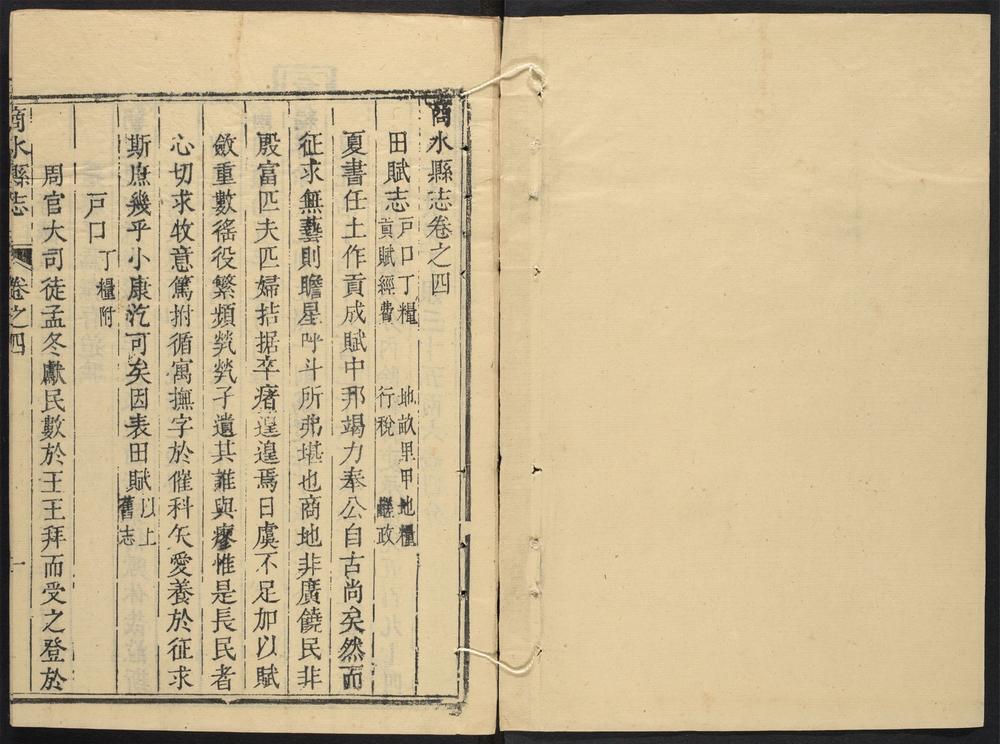 商水縣志卷之四
田賦志 戶口丁糧 地畝里甲 地糧
貢賦經費 行稅 鹽政
夏書任土作貢成賦中邦竭力奉公自古尚矣然而
征求無藝則瞻星呼斗所弗堪也商地非廣饒民非
殷富匹夫匹婦拮据卒瘏遑遑焉日虞不足加以賦
斂重數徭役繁頻煢煢孑遺其誰與瘳惟是長民者
心切求牧意篤拊循寓撫字於催科矢愛養於征求
斯庶幾乎小康汔可矣因表田賦 以上
舊志
戶口 丁糧附
周官大司徒孟冬獻民數於王王拜而受之登於
商水縣志 卷之四 一